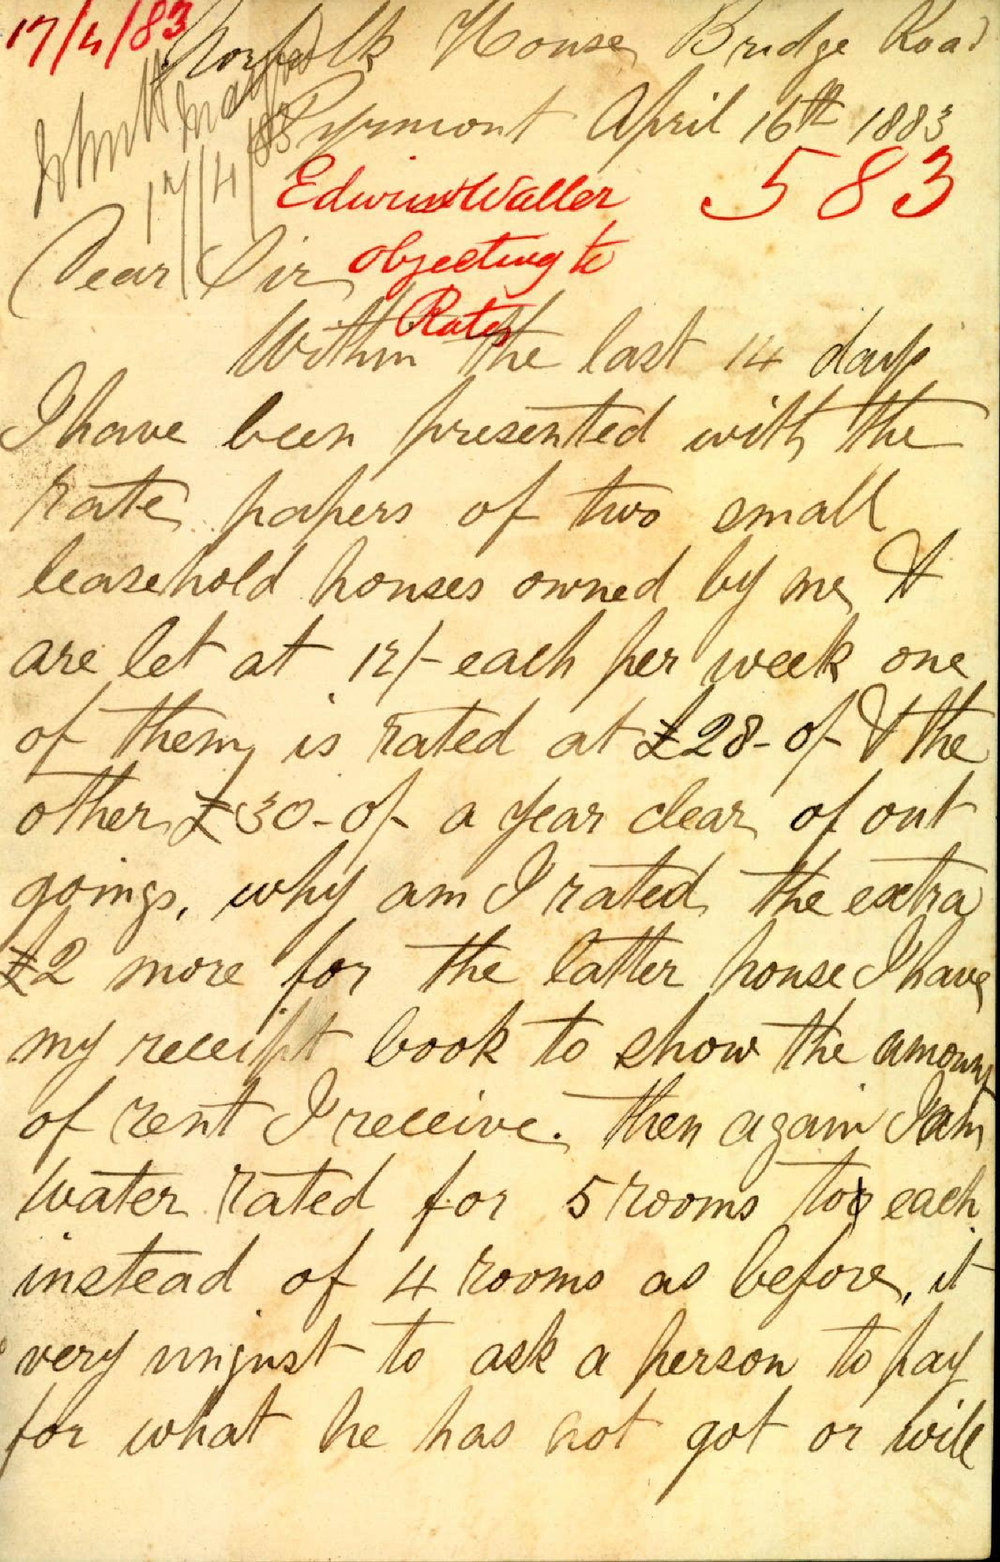 17/4/83
Norfolk House Bridge Road
Pyrmont April 16th 1883
John H
17/4/83
Edwin Waller 583
objecting to
Rates
Dear Sir
Within the last 14 days
I have been presented with the
rate papers of two small
leasehold houses owned by me &
are let at 12/- each per week one
of them is rated at £28-0/- & the
other £30-0/- a year clear of out
goings, why am I rated the extra
£2 more for the latter house I have
my receipt book to show the amount
of rent I receive. then again I am
water rated for 5 rooms to each
instead of 4 rooms as before, it
very unjust to ask a person to pay
for what he has not got or will